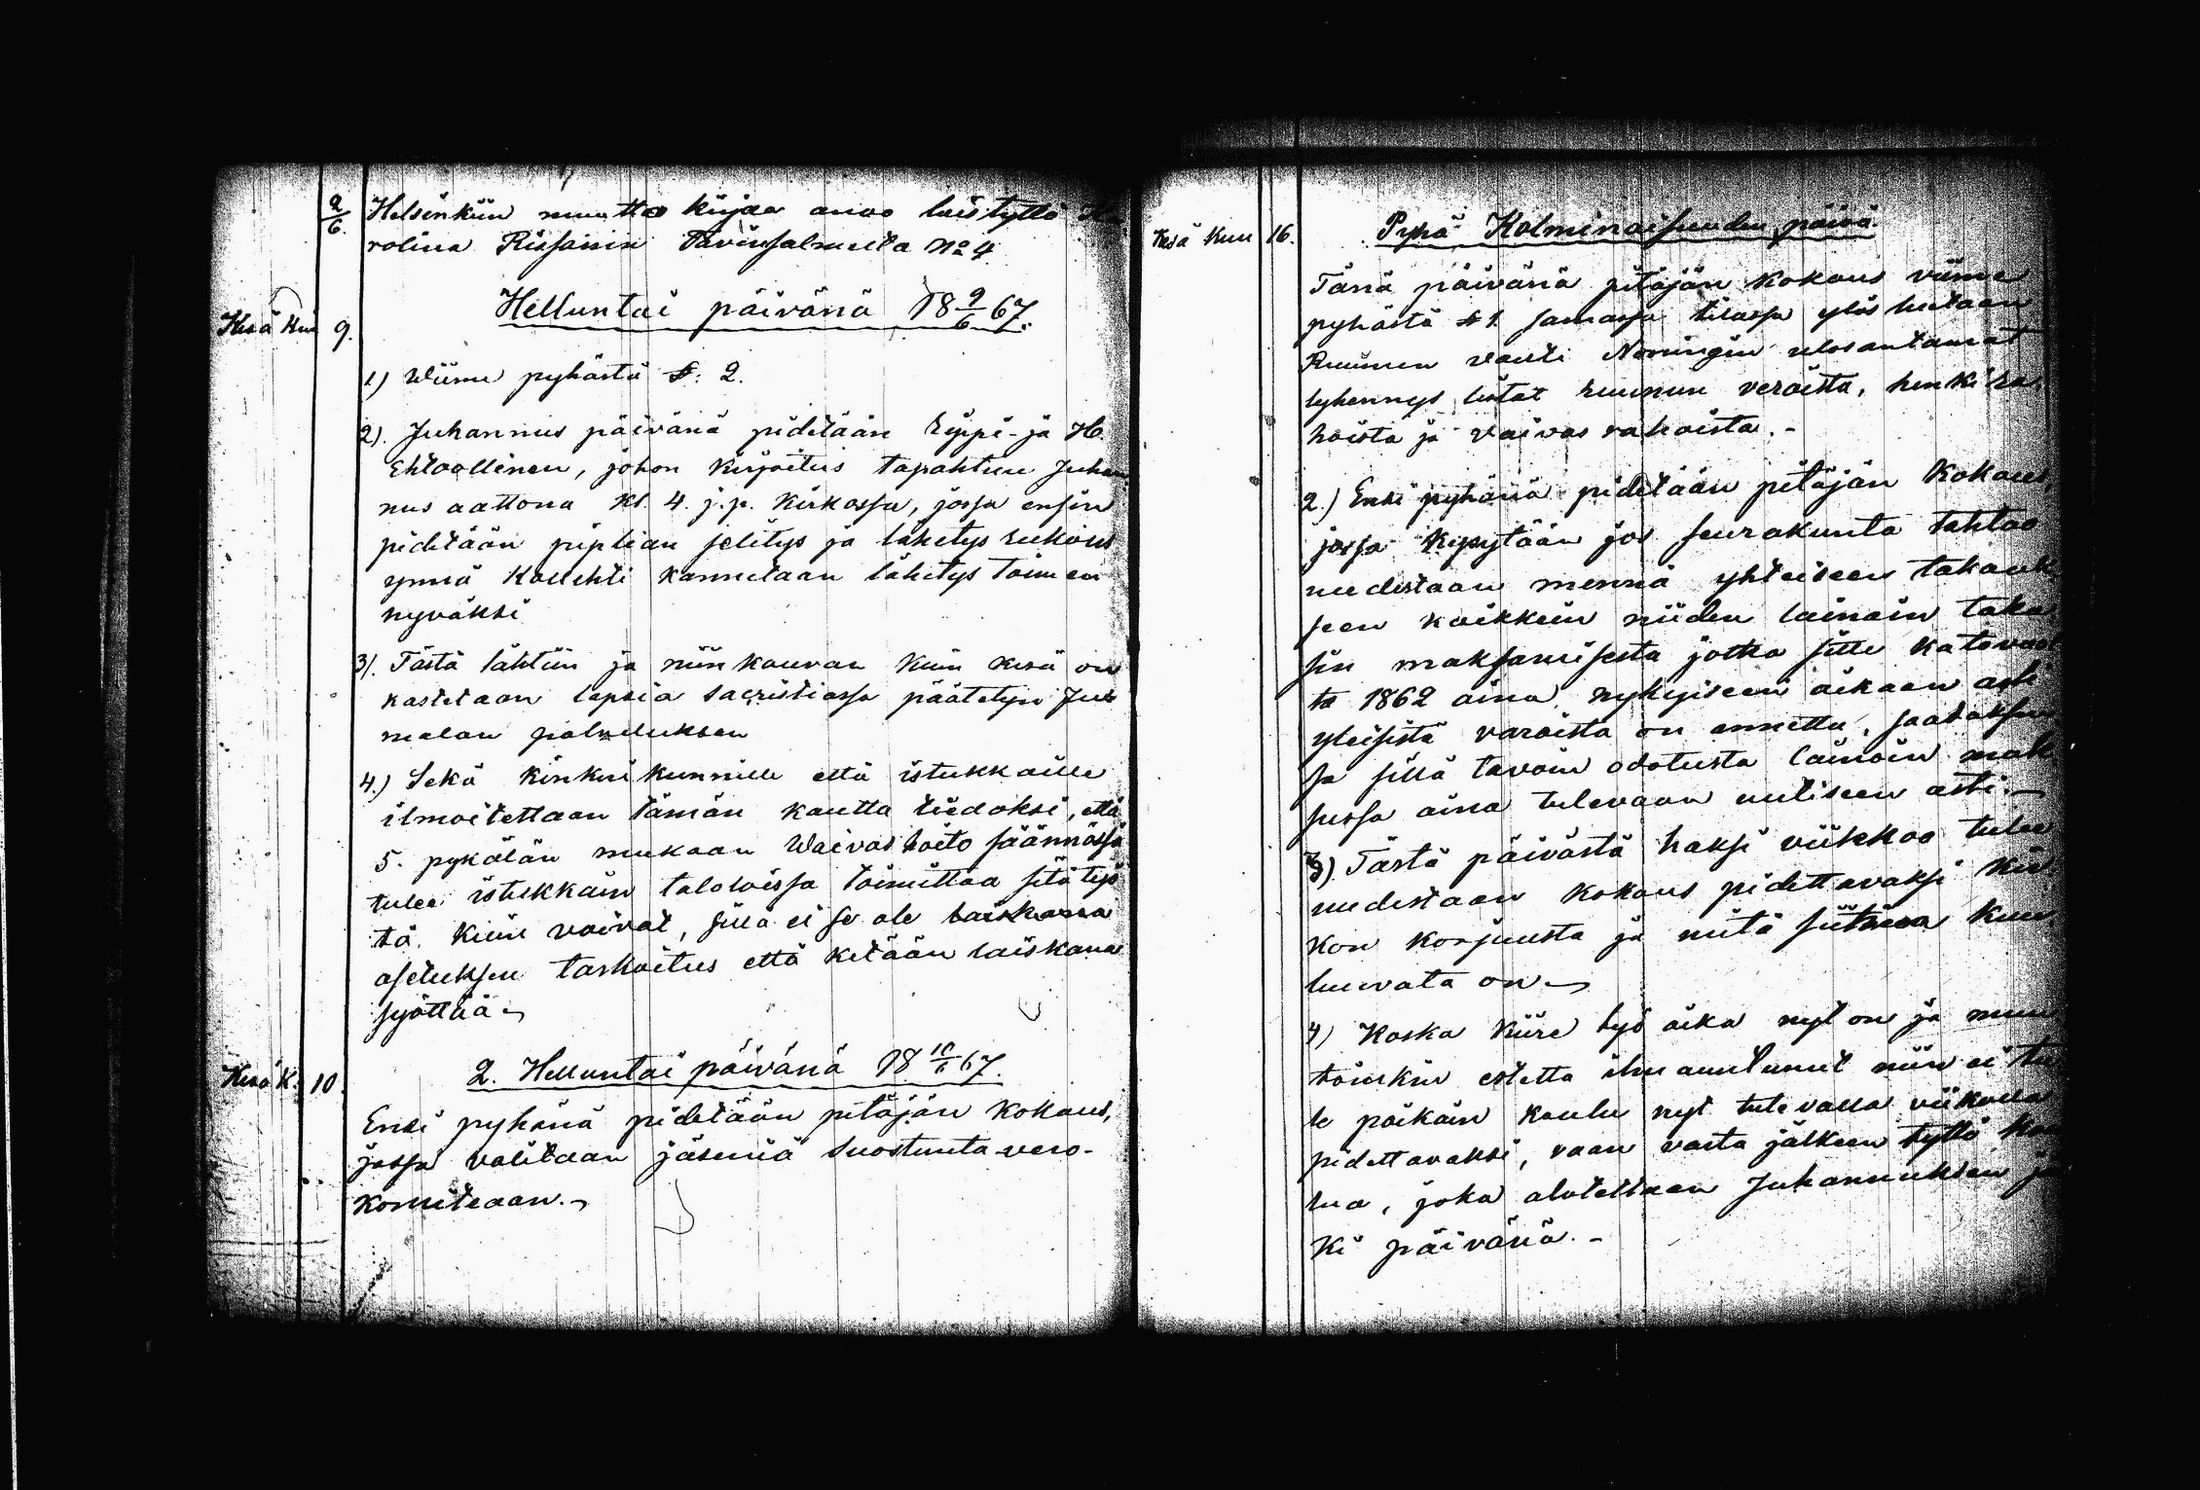 2/6. Helsinkiin muutto kirjaa anoo loistyttö Ka
rolina Rissanin Pavinsalmelta No 4
Kesä Kuu 9. Helluntai päivänä 18 9/6 67.
1) Wiime pyhästä §: 2.
2). Juhannus päivänä pidetään Rippi- ja H.
Ehtoollinen, johon kirjoitus tapahtuu Juhan
nus aattona kl. 4. j.p. Kirkossa, jossa ensin
pidetään piplian selitys ja lähetys rukous
ynnä Kollehti kannetaan lähetys toimen
hyväksi
3). Tästä lähtiin ja niin kauvan kuin kesä on
kastetaan lapsia sacristiassa päätetyn Ju
malan palveluksen
4.) Sekä kinkeri kunnille että istukkaille
ilmoitettaan tämän kautta tiedoksi, että
5. pykälän mukaan Waivashoito säännössä
tulee istukkain taloloissa toimittaa sitä työ
tä kuin voivat, sillä ei se ole laiskana
asetuksen tarkoitus että ketään laiskana
syöttää
Kesä K. 10. 2. Helluntai päivänä 18 10/6 67.
Ensi pyhänä pidetään pitäjän kokous,
jossa valitaan jäseniä suostunta-vero-
komiteaan.
Kesä Kuu 16. Pyhä Kolminaisuuden päivä.
Tänä päivänä pitäjän kokous viime
pyhästä § 1. samassa tilassa ylös luetaan
Ruunun vouti Noringin ulosantamat
lyhennys listat ruunun veroista, henki ra
hoista ja vaivas rahoista. -
2.) Ensi pyhänä pidetään pitäjän kokous,
jossa kysytään jos seurakunta tahtoo
uudestaan mennä yhteiseen takauk
seen kaikkein niiden lainain taka
sin maksamisesta jotka sitte katovuo
ta 1862 aina nykyiseen aikaan asti
yleisistä varoista on annettu, saadaksen
sa sillä tavoin odotusta lainain mak
sussa aina tulevaan uutiseen asti.
3) Tästä päivästä kaksi viikkoo tulee
uudestaan kokous pidettavaksi kir
kon korjuusta ja mitä siihen kuu
luvata on
4) Koska kiire työ aika nyt on ja muu
toinkin estettä ilmaantunut niin ei tu
le poikain koulu nyt tulevalla viikolla
pidettavaksi, vaan vasta jälkeen tyttö kou
lua, joka alotettaan Juhannuksen jo
ki päivänä. -